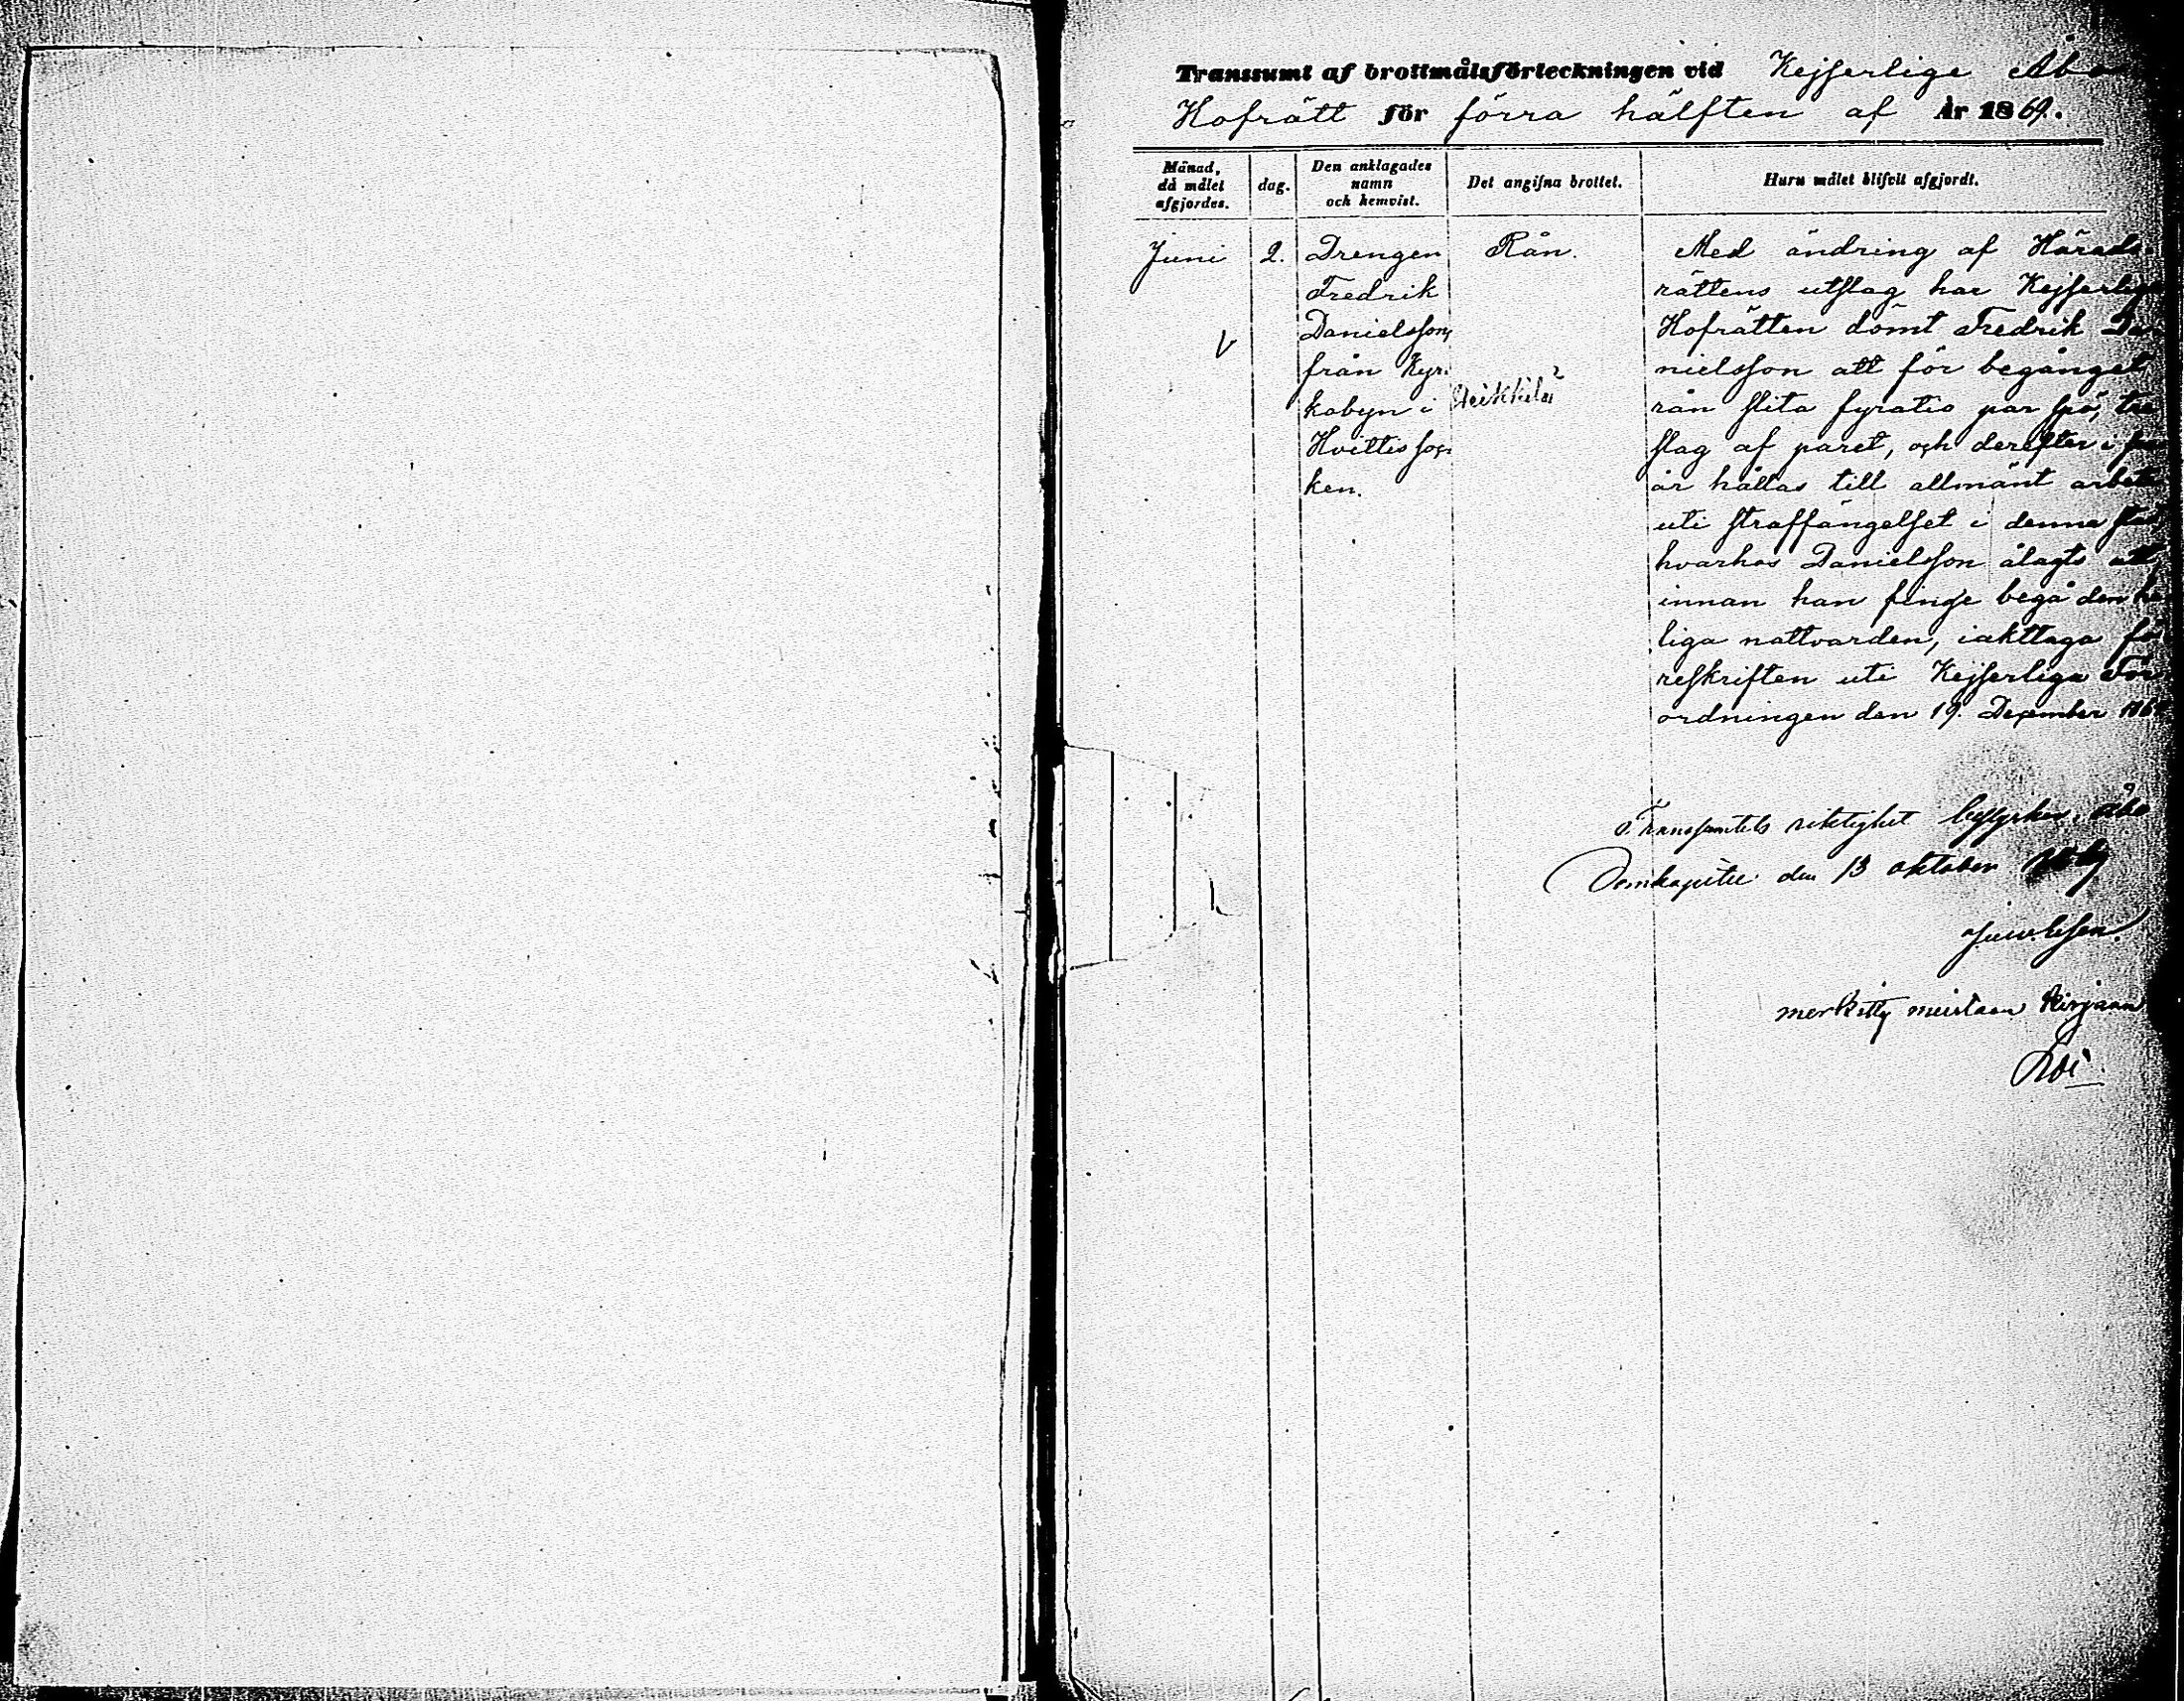 Transsumt af brottmålsförteckningen vid Kejserlige Åbo
Hofrätt för förra hälften af År 1869.
Månad, då målet afgjordes.
dag.
Den anklagades namn och hemvist.
Det angifna brottet.
Huru målet blifvit afgjordt.
Juni 2.
Drengen
Fredrik
Danielsson,
från Kyr-
kobyn i
Hvittis soc-
ken.
Rån.
Med ändring af Härads-
rättens utslag har Kejserlige
Hofrätten dömt Fredrik Da-
nielsson att för begånget
rån slita fyratio par spö, tre
slag af paret, och derefter i
år hållas till allmänt arbete
uti straffängelset i denna stad,
hvarhos Danielsson ålagts att,
innan han finge begå den he-
liga nattvarden, iakttaga fö-
reskriften uti Kejserliga För-
ordningen den 19. December 186
Transsumtets riktighet bestyrker. Åbo
Domkapitel den 13 oktober 1869
merkitty muistaan kirjaan